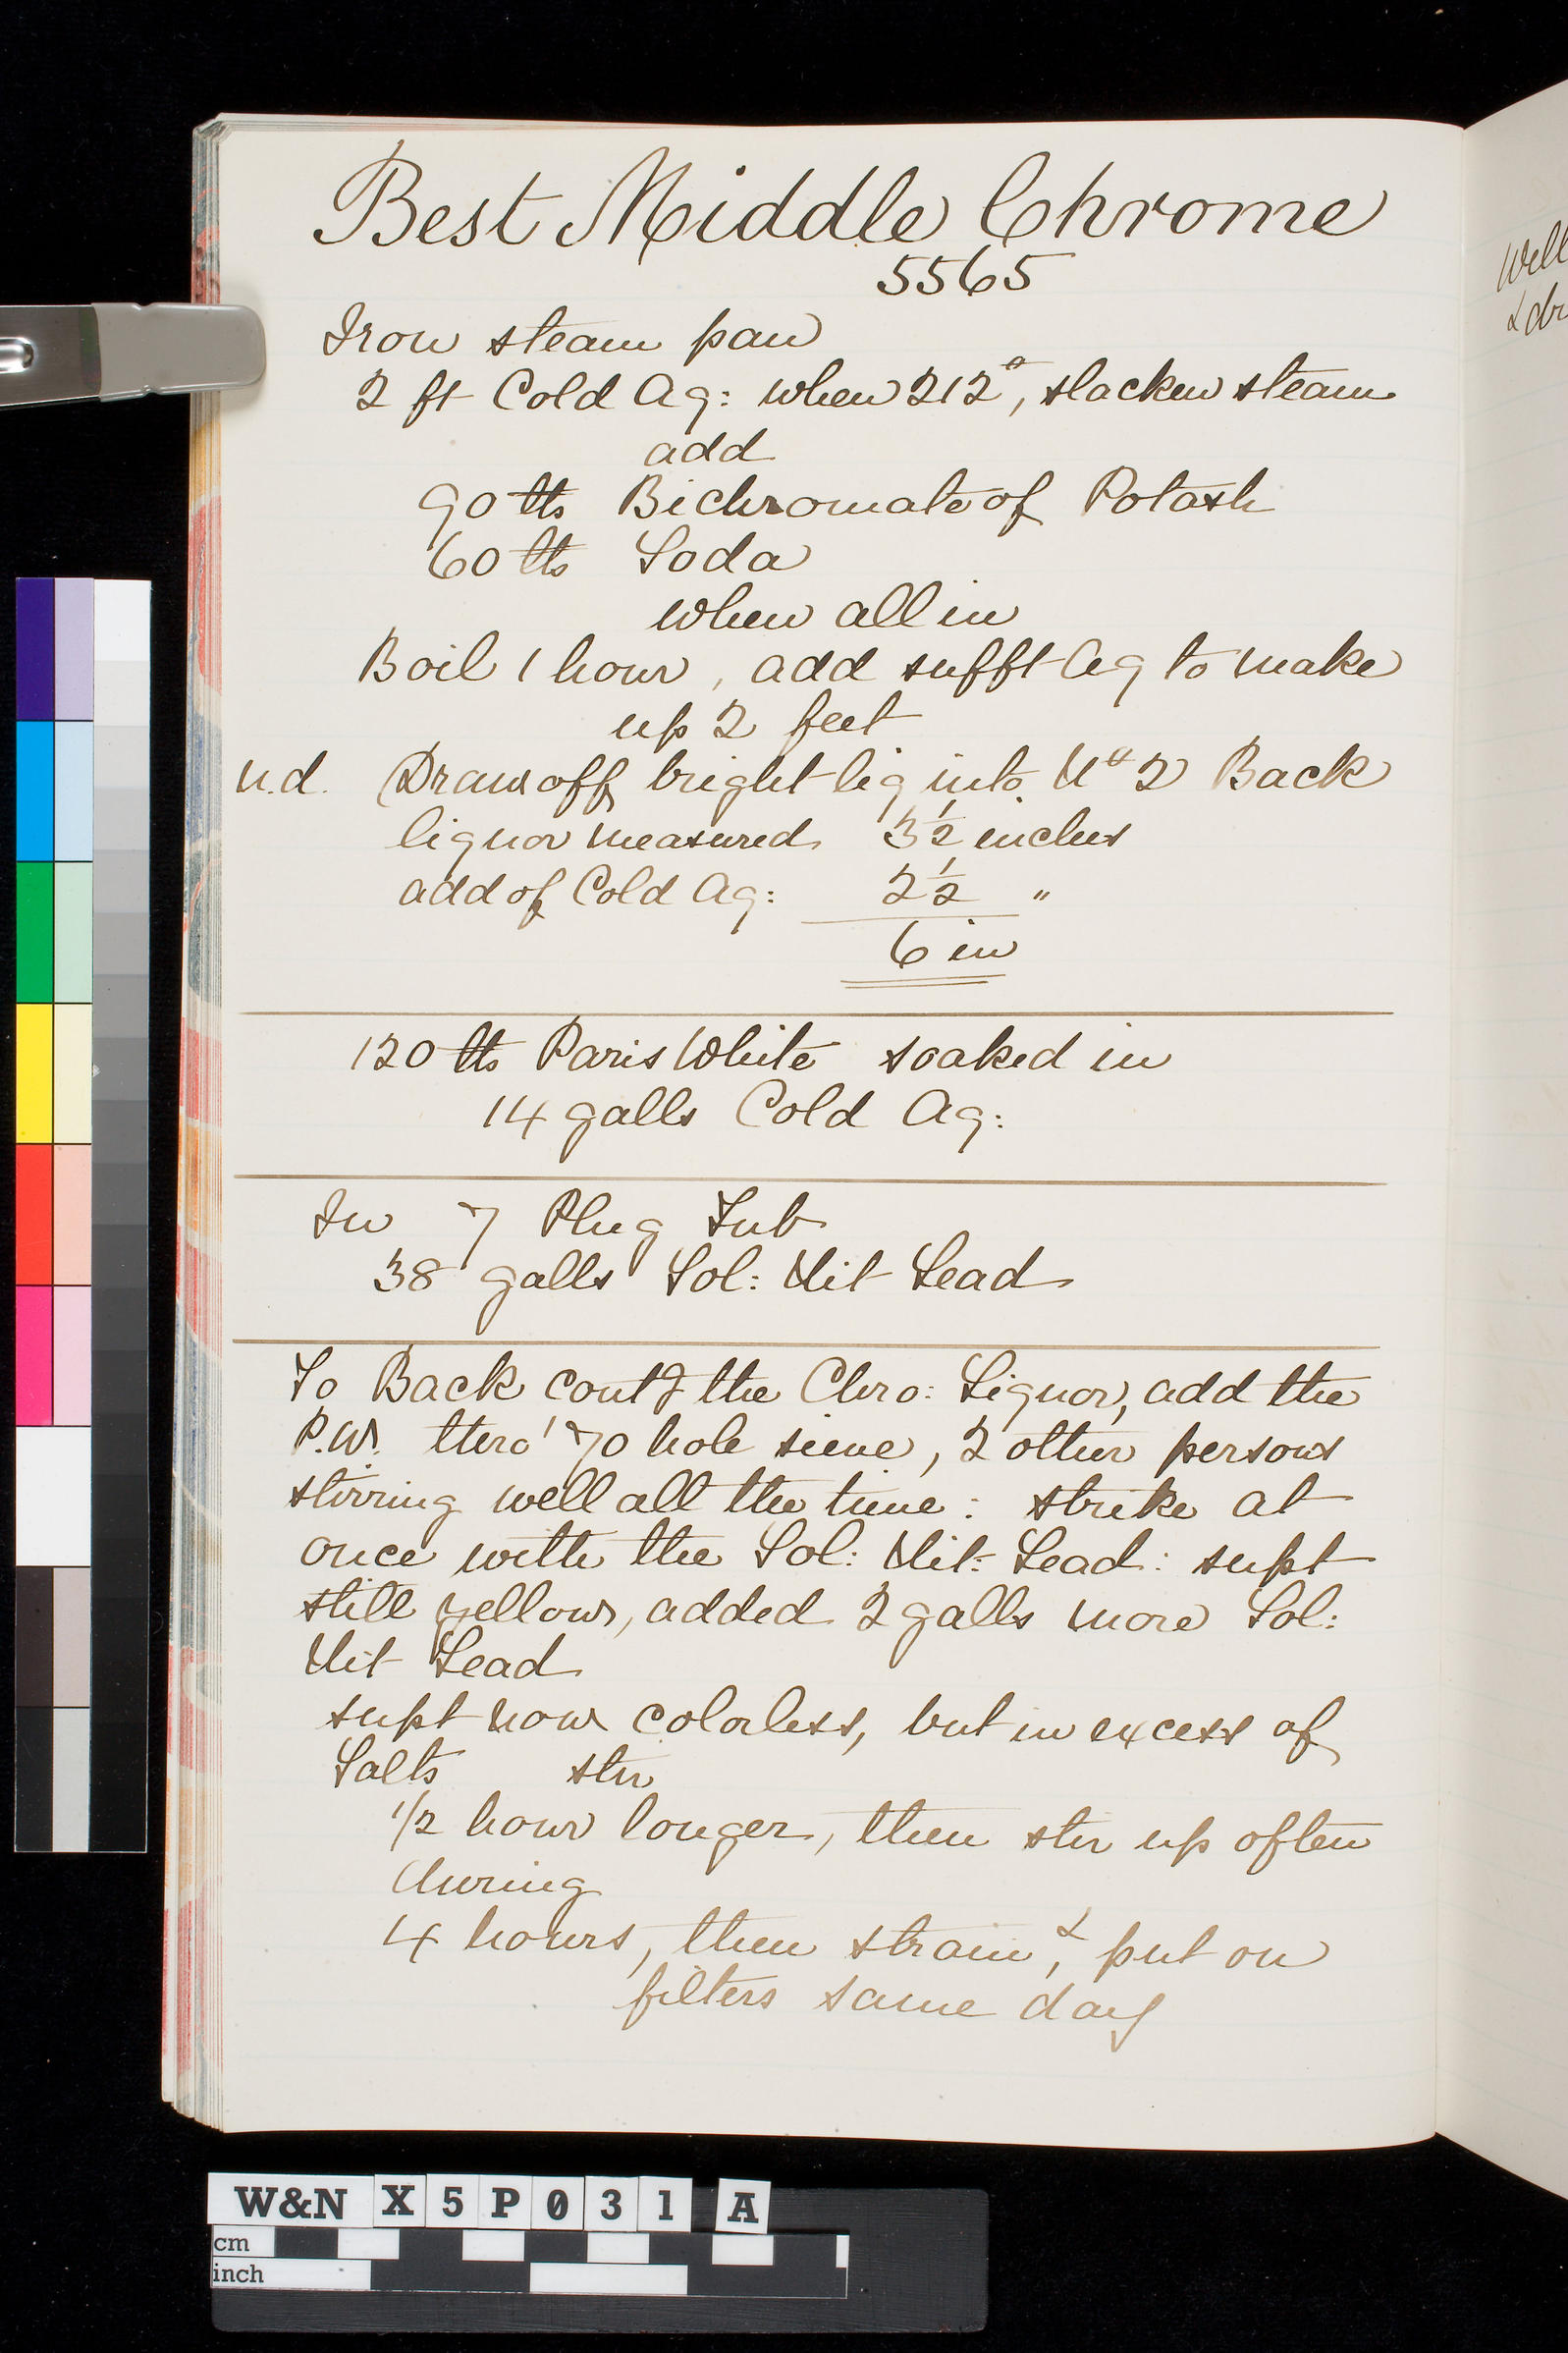 Best Middle Chrome
5565
Iron steam pan
2 ft Cold Aq: when 212°, slacken steam
add
90 lbs Bichromate of Potash
60 lbs Soda
when all in
Boil 1 hour, add sufft Aq to make
up 2 feet
n.d. Draw off bright liq into No 2 Back
liquor measured 3½ inches
add of Cold Aq: 2½ "
6 in
120 lbs Paris White soaked in
14 galls Cold Aq:
In 7 Plug Tub
38 galls Sol: Nit Lead
To Back contg the Chro: Liquor, add the
P.W. thro' 70 hole sieve, 2 other persons
stirring well all the time: strike at
once with the Sol: Nit: Lead: supt
still yellow, added 2 galls more Sol:
Nit Lead
supt now colorless, but in excess of
Salts stir
1/2 hour longer, then stir up often
during
4 hours, then strain, & put on
filters same day
Well
& dr
W&N X5P031 A
cm
inch